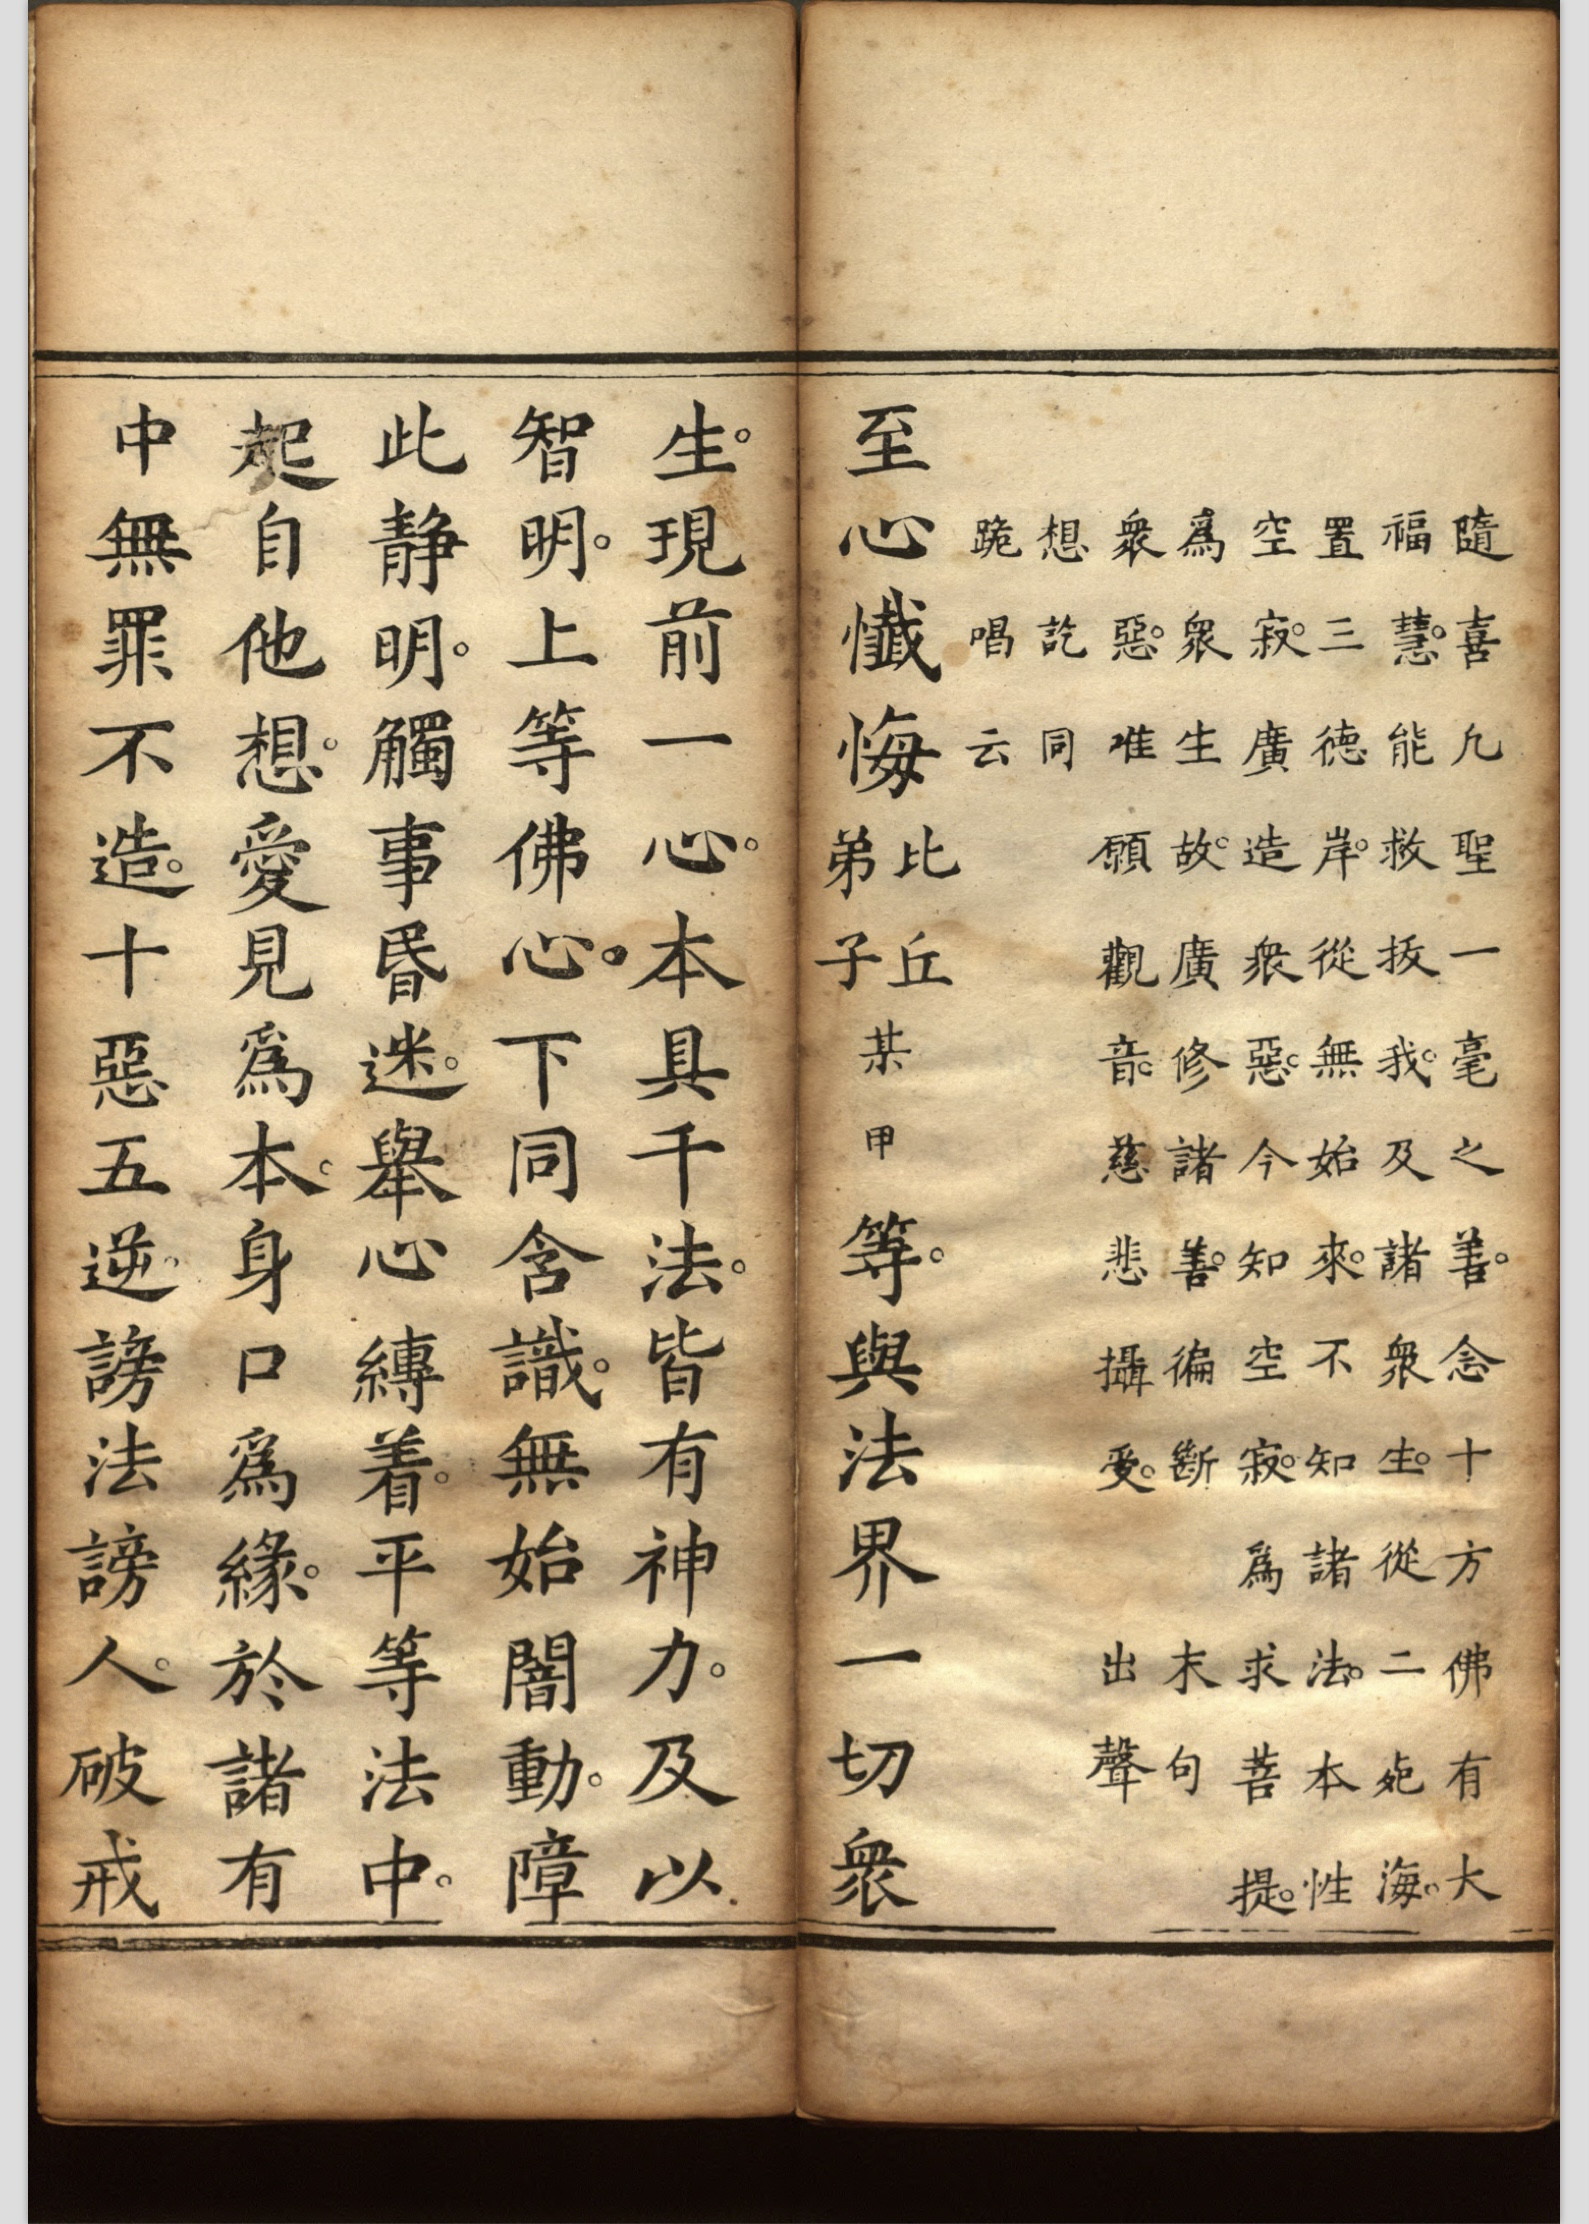 隨喜凡聖一毫之善。念十方佛有大
福慧。能救拔我。及諸衆生。從二死海。
置三德岸。從無始來。不知諸法。本性
空寂。廣造衆惡。今知空寂。爲求菩提。
爲衆生故。廣修諸善。徧斷
衆惡。唯願觀音。慈悲攝受。
末句
出聲
想訖同
跪唱云
至心懺悔
比丘
弟子
某甲等。與法界一切衆
生。現前一心。本具千法。皆有神力。及以
智明。上等佛心。下同含識。無始闇動。障
此静明。觸事昏迷。舉心縛着。平等法中。
起自他想。愛見爲本。身口爲緣。於諸有
中無罪不造。十惡五逆。謗法謗人。破戒